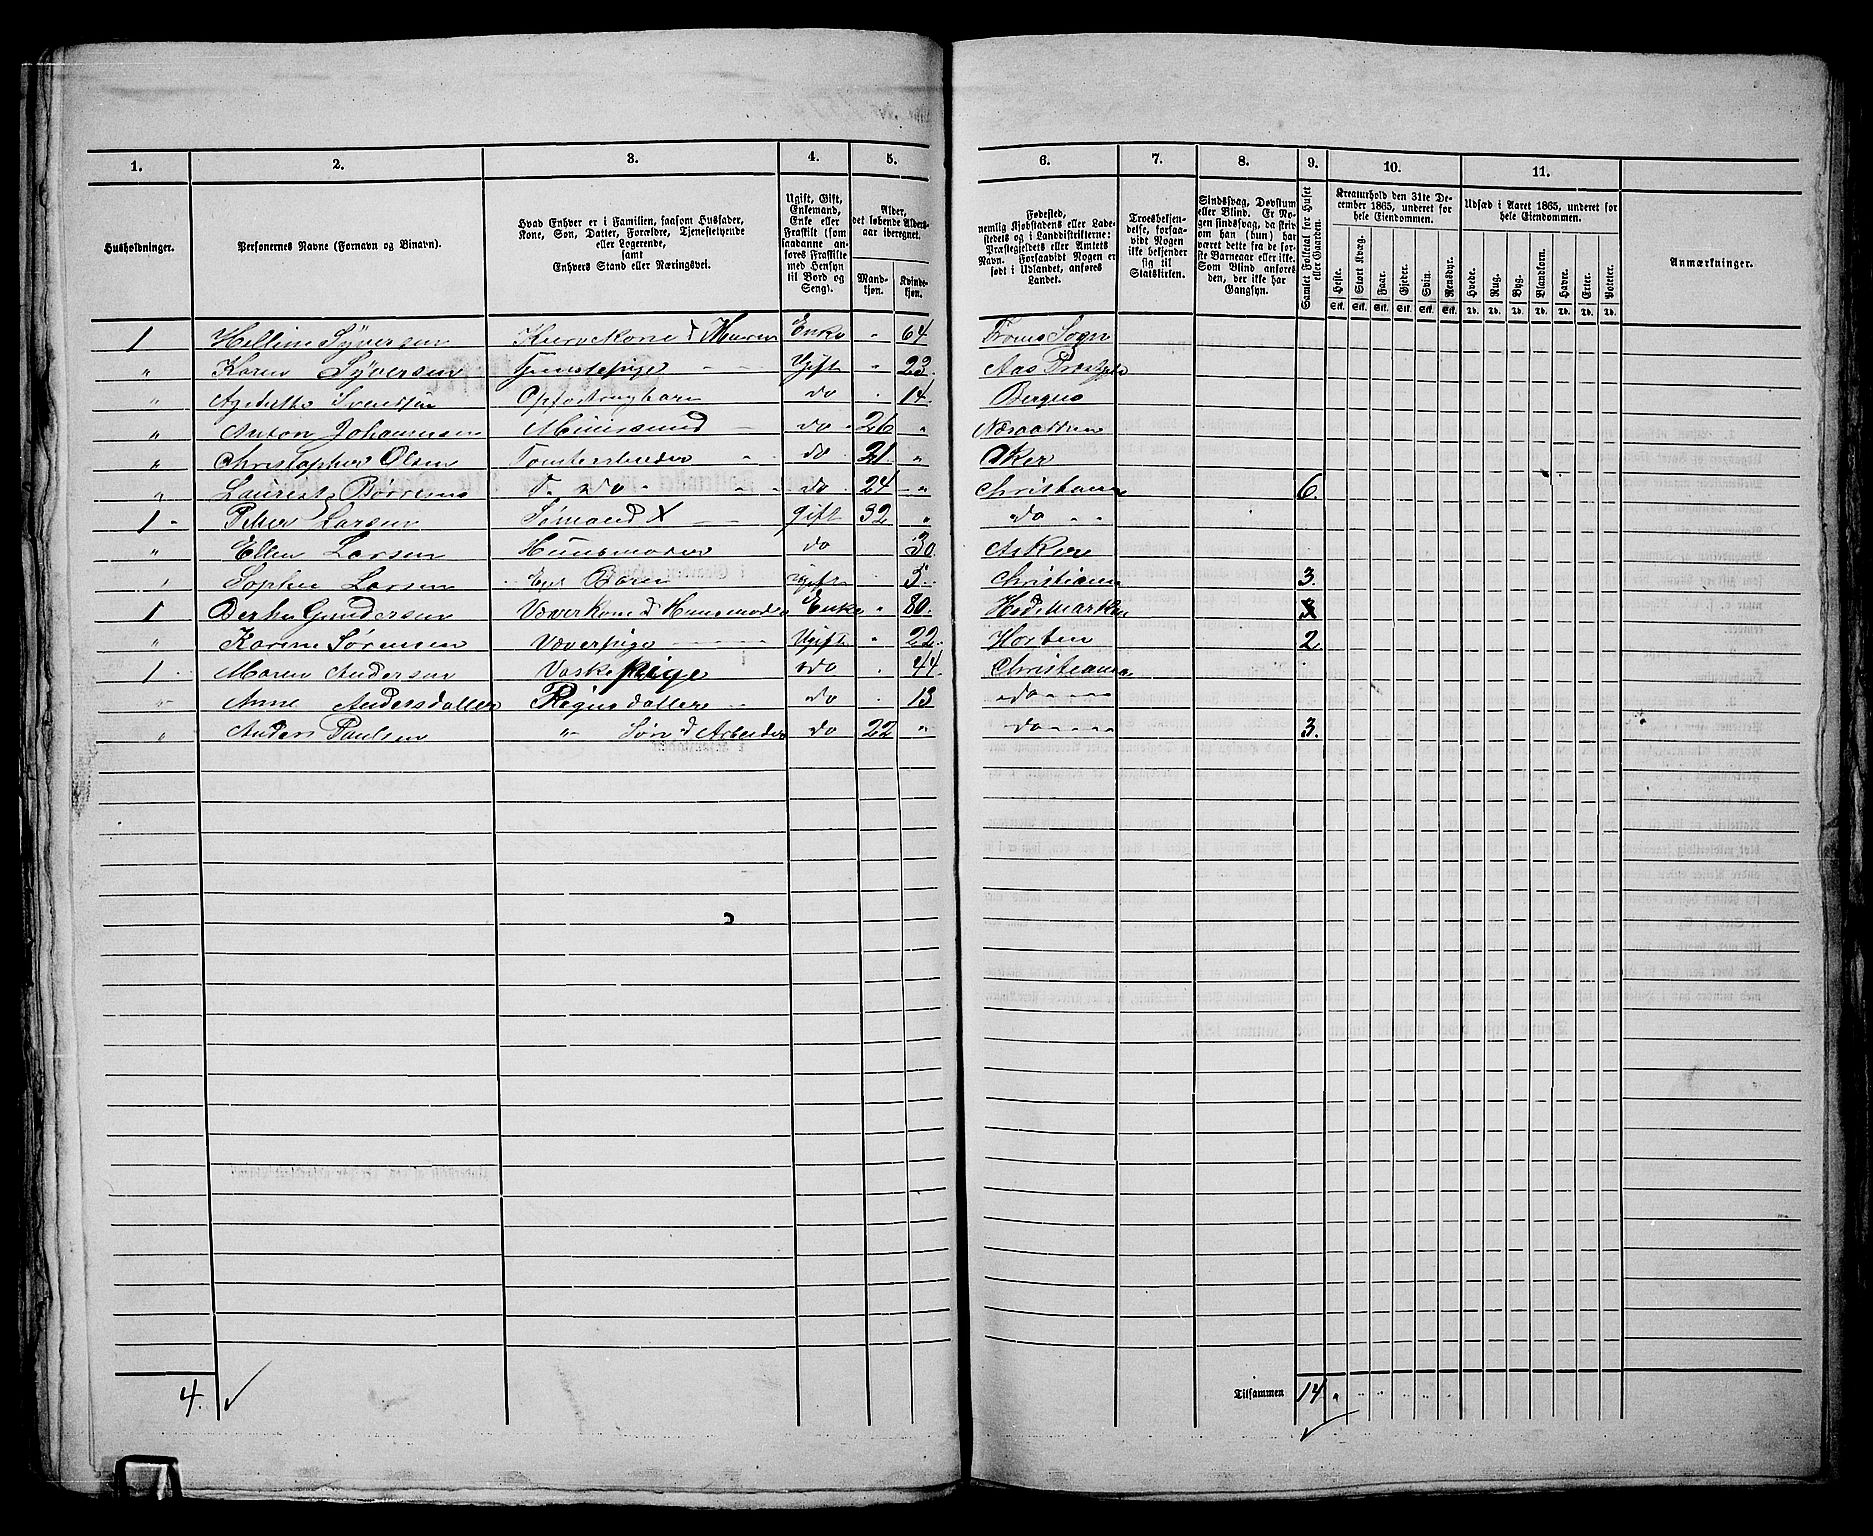 1. 2. 3. 4. 5. 6. 7. 8. 9. 10. 11.
Husholdninger.
Personernes Navne (Fornavn og Binavn).
Hvad Enhver er i Familien, saasom Husfader, Kone, Søn, Datter, Forældre, Tjenestetyende eller Logerende, samt Enhvers Stand eller Næringsvei.
Ugift, Gift, Enkemand, Enke eller Fraskilt (som saadanne anføres Fraskilte med Hensyn til Bord og Seng).
Alder, det løbende Alders-aar iberegnet.
Mand-kjøn. Kvinde-kjøn.
Fødested, nemlig Kjøbstadens eller Ladestedets og i Landdistrikterne: Præstegjeldets eller Amtets Navn. Forsaavidt Nogen er født i Udlandet, anføres Landet.
Troesbekjendelse, forsaavidt Nogen ikke bekjender sig til Statskirken.
Sindssvag, Døvstum eller Blind. Er Nogen sindssvag, da skrives om han (hun) har været dette fra de første Barneaar eller ikke. Som Blind anføres den, der ikke har Gangsyn.
Samlet Folketal for Huset eller Gaarden.
Kreaturhold den 31te December 1865, underet for hele Eiendommen.
Heste. Stort Kvæg. Faar. Gjeder. Svin. Rensdyr.
Stk. Stk. Stk. Stk. Stk. Stk.
Udsæd i Aaret 1865, underet for hele Eiendommen.
Hvede. Rug. Byg. Blandkorn. Havre. Erter. Poteter.
Td. Td. Td. Td. Td. Td. Td.
Anmærkninger.
1 Helline Syversen Enke " 64
" Karen Syversen Tjenestepige Ugift " 23
" Svendsen do 14 Bergens
" Anton Johannesen do 26 "
" Christopher Olsen do 21 " Aker
" do do 24 " Christiania 6
1 Peter Larsen Sømand X gift 32 " do
" Ellen Larsen Huusmoder do 30 Asker
" Sophie Larsen Barn Ugift 5 Christiania 3.
1 Gundersen Enke " 80 Hedemarken
" Karine Sørensen Væverpige Ugift " 22 Horten 2
1 Maren Andersen Vaskepige do 44 Christiania
" Anne Andersdatter do 13 do
" Anders Paulsen " Søn Arbeider do 22 " do 3.
4.
Tilsammen 14